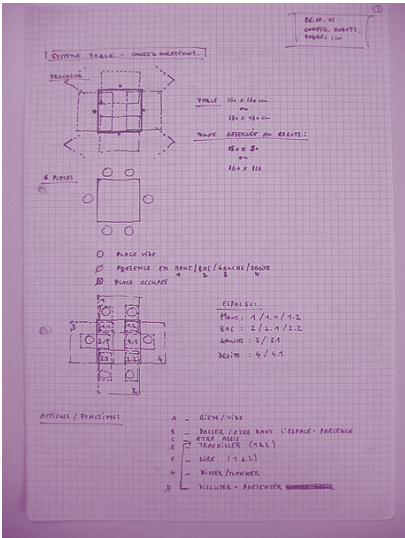 1
26.10.06
CONFIG. ROBOTS.
SYSTÈME TABLE - CONFIGURATIONS.
TABLE 160 x 160 cm
ou
180 x 180 cm
ZONE RESERVÉE AU ROBOTS :
ou
6 PLACES
PLACE VIDE
PRESENCE EN HAUT / BAS / GAUCHE / DROITE
1 2 3 4
PLACE OCCUPÉE
ESPACES :
HAUT : 1 / 1.1 / 1.2
BAS : 2 / 2.1 / 2.2
GAUCHE : 3 / 3.1
DROITE : 4 / 4.1
1
1.1 1.2
3 3.1 4.1 4
2.1 2.2
2
ACTIONS / FONCTIONS
A - RIEN / VIDE
B - PASSER / ETRE DANS L'ESPACE - PRESENCE
C - ETRE ASSIS
E - TRAVAILLER (1 à 2)
F - LIRE (1 à 2)
G - DINER / MANGER
D - DISCUTER - PRESENTER